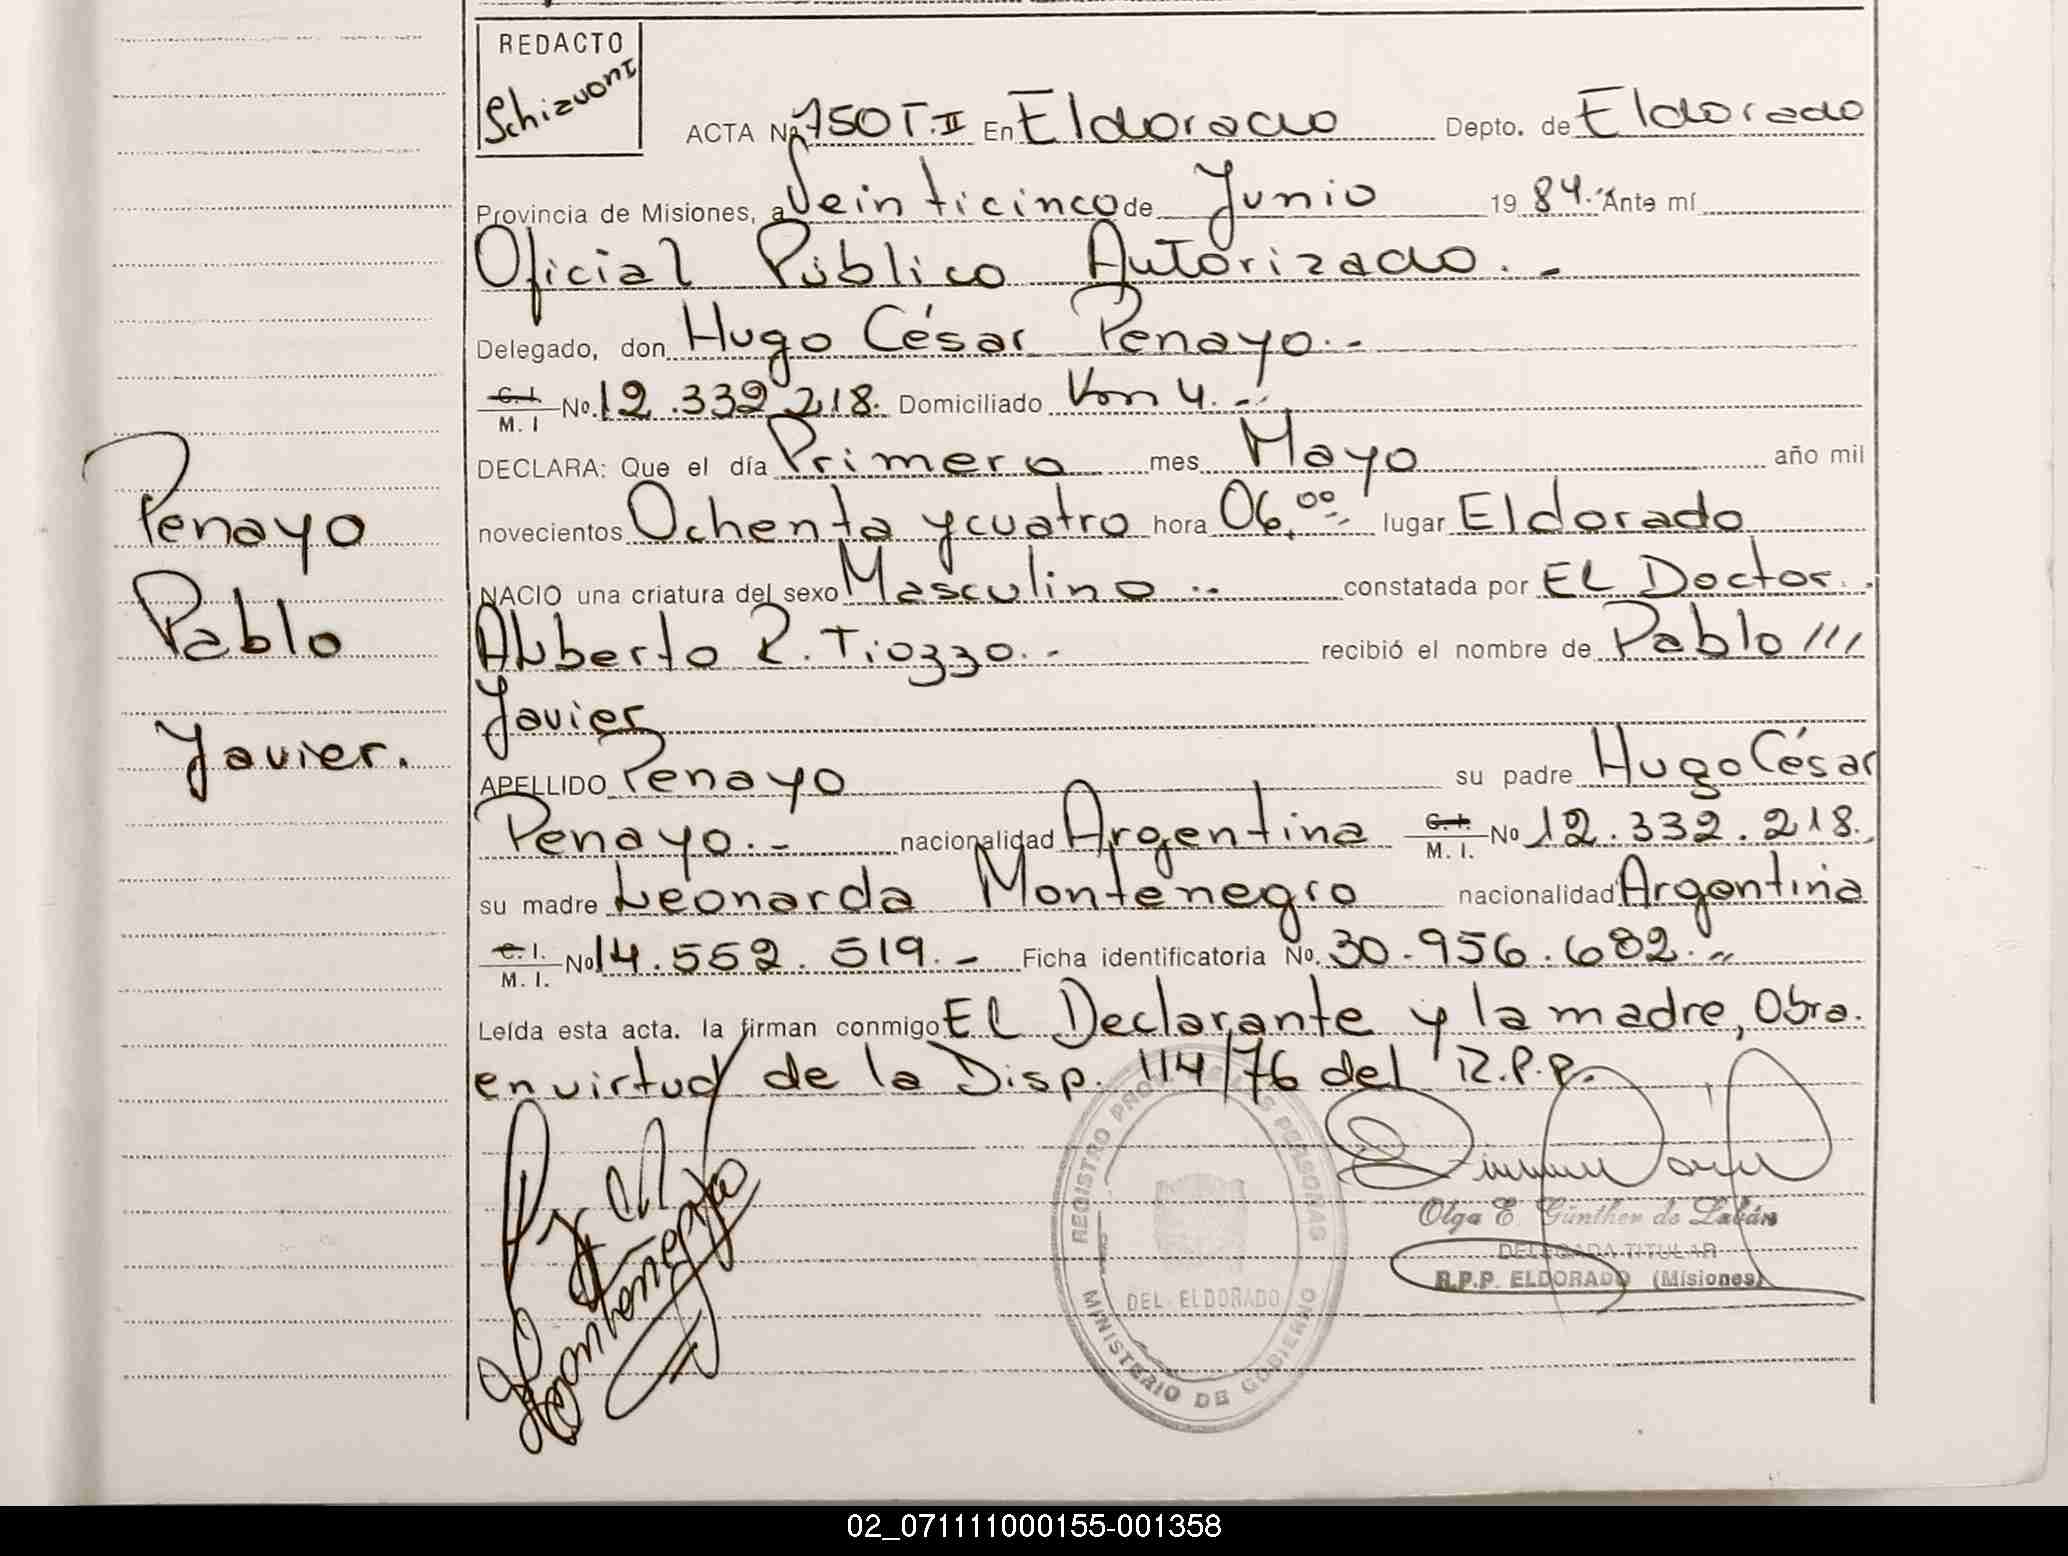 REDACTO
Schizuoni
ACTA Nº 750 T. II En Eldorado Depto. de Eldorado
Provincia de Misiones, a Veinticinco de Junio 19 84.- Ante mí
Oficial Público Autorizado. -
Delegado, don Hugo César Penayo. -
C. I.
M. I No. 12.332.218. Domiciliado Km 4. -
DECLARA: Que el día Primero mes Mayo año mil
novecientos Ochenta y cuatro hora 06,00 lugar Eldorado
NACIO una criatura del sexo Masculino .. constatada por El Doctor.
Alberto R. Tiozzo. - recibió el nombre de Pablo ///
Javier
APELLIDO Penayo su padre Hugo César
Penayo. - nacionalidad Argentina C. I.
M. I. No 12.332.218.
su madre Leonarda Montenegro nacionalidad Argentina
C. I.
M. I. No 14.552.519. - Ficha identificatoria No. 30.956.682. -
Leída esta acta. la firman conmigo El Declarante y la madre, Obra.
en virtud de la Disp. 114/76 del R.P.P.
Penayo
Pablo
Javier.
REGISTRO PROV. DE LAS PERSONAS
DEL. ELDORADO
MINISTERIO DE GOBIERNO
Olga E. Günther de Labán
DELEGADA TITULAR
R.P.P. ELDORADO (Misiones)
02_071111000155-001358